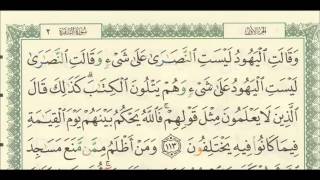 الجزء الأول
سورة البقرة ٢
وَقَالَتِ الْيَهُودُ لَيْسَتِ النَّصَارَىٰ عَلَىٰ شَيْءٍ وَقَالَتِ النَّصَارَىٰ
لَيْسَتِ الْيَهُودُ عَلَىٰ شَيْءٍ وَهُمْ يَتْلُونَ الْكِتَابَ ۗ كَذَٰلِكَ قَالَ
الَّذِينَ لَا يَعْلَمُونَ مِثْلَ قَوْلِهِمْ ۚ فَاللَّهُ يَحْكُمُ بَيْنَهُمْ يَوْمَ الْقِيَامَةِ
فِيمَا كَانُوا فِيهِ يَخْتَلِفُونَ ١١٣ وَمَنْ أَظْلَمُ مِمَّنْ مَنَعَ مَسَاجِدَ